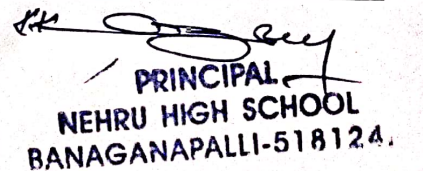 PRINCIPAL
NEHRU HIGH SCHOOL
BANAGANAPALLI-518124.